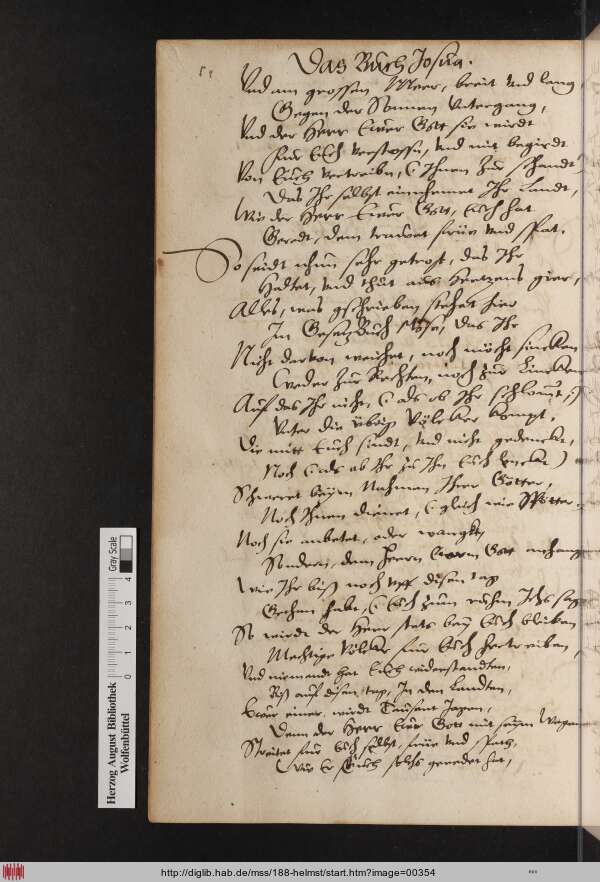 Das Buch Josua.
Vnd am grossen Meer, breit vnd lang,
Gegen der Sonnen vntergang,
Vnd der Herr Ewer Gott sie wirdt
Fur Euch verstossn, vnd mit begirdt
Von Euch vertreibn, ( Ihnen zur schandt )
Das Ihr selbst einnehmet Ihr Landt,
Wie der Herr Ewer Gott, Euch hat
Geredt, dem trawet früe vnd spat.
So seidt nhun sehr getrost, das Ihr
Haltet, vnd thut aus Hertzens gier,
Alles, was gschrieben stehet hier
In Gesetz Buch Mose, das Ihr
Nicht darvon weichet, noch möcht sincken
(weder zur Rechten, noch zur Lincken
Auf das Ihr nicht, ( als ob Ihr schlommt,)
Vnter die übrig Völcker kompt,
Die mitt Euch sindt, vnd nicht gedencket,
Noch ( als ob Ihr zu Ihn Euch lencket )
Schweret beym Nahmen Ihrer Götter,
Noch Ihnen dienet, ( gleich wie Spötter
Noch sie anbetet, oder wangkt,
Sondern, dem Herrn Ewrm Gott anhanget
Wie Ihr biß noch vff disen tag
Gethan habt, ( Euch zum ruhm Ichs sag
So wirdt der Herr stets bey Euch bleiben
Mechtige Völcker fur Euch hertreiben,
Vnd niemandt hat Euch widerstandten,
Biß auf disen tag, In den Landten,
Ewer einer, wirdt Tausent Jagen,
Denn der Herr Ewr Gott mit seym Wagen
Streitet fur Euch selbst, früe vnd spath,
Wie Er Euch solchs geredet hat,
Herzog August Bibliothek
Wolfenbüttel
Gray Scale
0 1 2 3 4
http://diglib.hab.de/mss/188-helmst/start.htm?image=00354